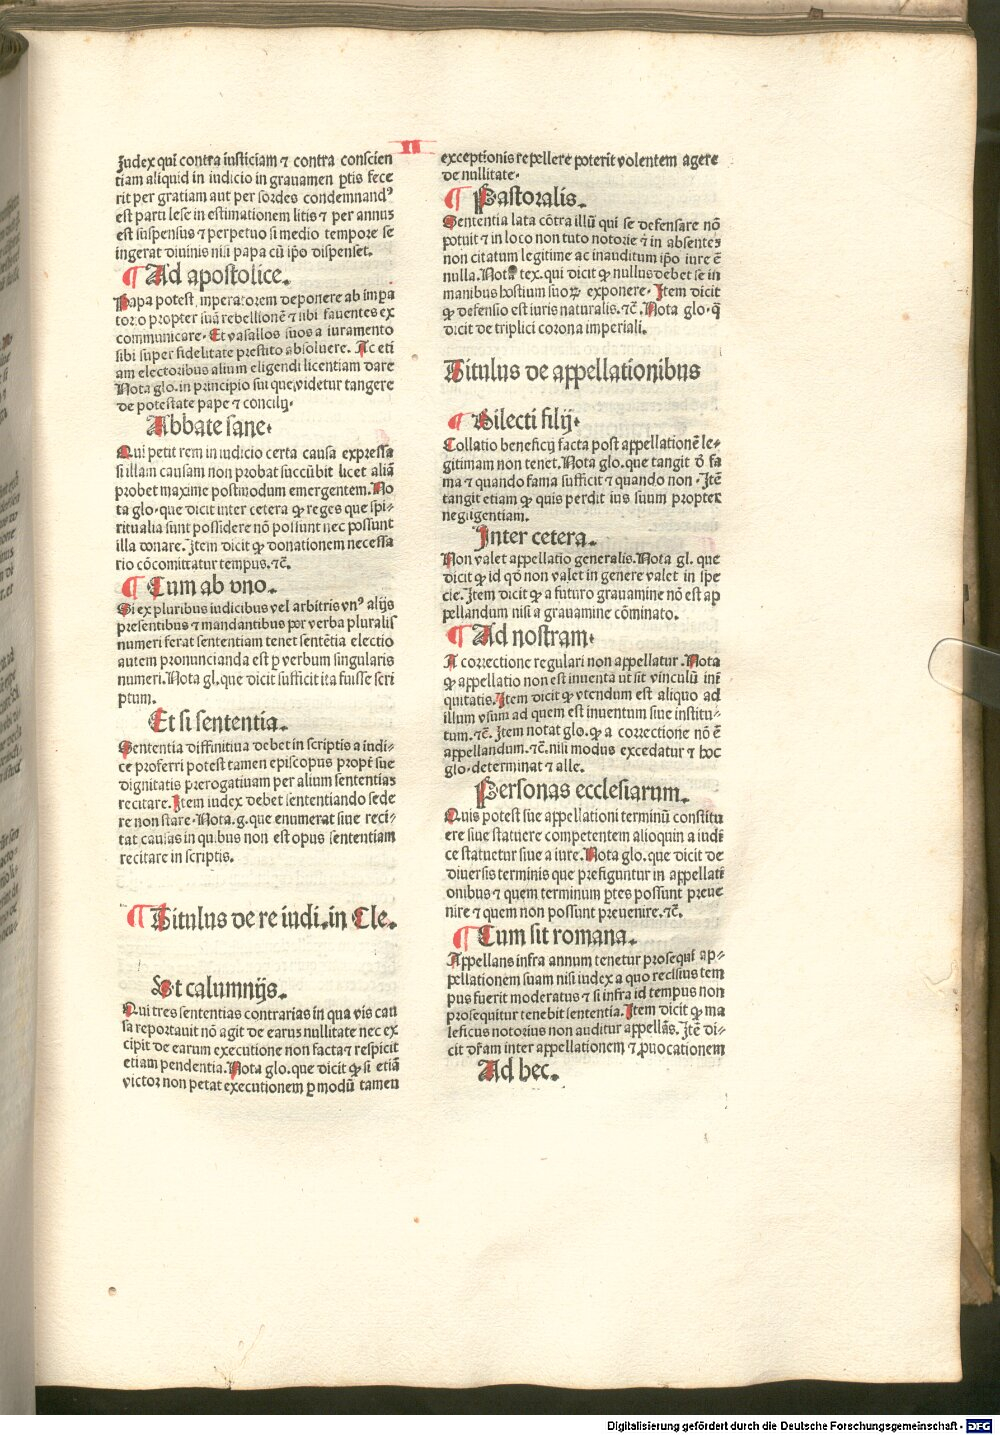 II
Iudex qui contra iusticiam ⁊ contra conscien
tiam aliquid in iudicio in grauamen ꝑtis fece
rit per gratiam aut per sordes condemnandꝰ
est parti lese in estimationem litis ⁊ per annus
est suspensus ⁊ perpetuo si medio tempore se
ingerat diuinis nisi papa cū ip̄o dispenset.
¶ Ad apostolice.
Papa potest imperatorem deponere ab impa
torio propter suā rebellionē ⁊ ubi fauentes ex
communicare. Et vasallos suos a iuramento
sibi super fidelitate prestito absoluere. Ac eti
am electoribus alium eligendi licentiam dare
Nota glo. in principio sui que videtur tangere
de potestate pape ⁊ concilij.
Abbate sane.
Qui petit rem in iudicio certa causa expressa
si illam causam non probat succūbit licet aliā
probet maxime postmodum emergentem. No
ta glo. que dicit inter cetera ꝙ reges que spi-
ritualia sunt possidere nō possunt nec possunt
illa donare. Item dicit ꝙ donationem necessa
rio cōcomittatur tempus. ⁊c̄.
¶ Cum ab vno.
Si ex pluribus iudicibus vel arbitris vnꝰ alijs
presentibus ⁊ mandantibus per verba pluralis
numeri ferat sententiam tenet sentētia electio
autem pronuncianda est ꝑ verbum singularis
numeri. Nota gl. que dicit sufficit ita fuisse scri
ptum.
Et si sententia.
Sententia diffinitiua debet in scriptis a iudi-
ce proferri potest tamen episcopus propt̄ sue
dignitatis prerogatiuam per alium sententias
recitare. Item iudex debet sententiando sede
re non stare. Nota. g. que enumerat siue reci-
tat causas in quibus non est opus sententiam
recitare in scriptis.
¶ Titulus de re iudi. in Cle.
Et calumnijs.
Qui tres sententias contrarias in qua vis cau
sa reportauit nō agit de earus nullitate nec ex
cipit de earum executione non facta ⁊ respicit
etiam pendentia. Nota glo. que dicit ꝙ si etiā
victor non petat executionem ꝑ modū tamen
exceptionis repellere poterit volentem agere
de nullitate.
¶ Pastoralis.
Sententia lata cōtra illū qui se defensare nō
potuit ⁊ in loco non tuto notorie ⁊ in absentes
non citatum legitime ac inauditum ip̄o iure ē
nulla. Nota tex. qui dicit ꝙ nullus debet se in
manibus hostium suoꝝ exponere. Item dicit
ꝙ defensio est iuris naturalis. ⁊c̄. Nota glo. q̄
dicit de triplici corona imperiali.
Titulus de appellationibus
¶ Dilecti filij.
Collatio beneficij facta post appellationē le-
gitimam non tenet. Nota glo. que tangit ō fa
ma ⁊ quando fama sufficit ⁊ quando non. Itē
tangit etiam ꝙ quis perdit ius suum propter
negligentiam.
Inter cetera.
Non valet appellatio generalis. Nota gl. que
dicit ꝙ id qō non valet in genere valet in spe
cie. Item dicit ꝙ a futuro grauamine nō est ap
pellandum nisi a grauamine cōminato.
¶ Ad nostram.
A correctione regulari non appellatur. Nota
ꝙ appellatio non est inuenta ut sit vinculū ini
quitatis. Item dicit ꝙ vtendum est aliquo ad
illum vsum ad quem est inuentum siue institu-
tum. ⁊c̄. Item notat glo. ꝙ a correctione nō ē
appellandum. ⁊c̄. nisi modus excedatur ⁊ hoc
glo. determinat ⁊ alle.
Personas ecclesiarum.
Quis potest sue appellationi terminū constitu
ere siue statuere competentem alioquin a iudi
ce statuetur siue a iure. Nota glo. que dicit de
diuersis terminis que prefiguntur in appellati
onibus ⁊ quem terminum ꝑtes possunt preue
nire ⁊ quem non possunt preuenire. ⁊c̄.
¶ Cum sit romana.
Appellans infra annum tenetur prosequi ap-
pellationem suam nisi iudex a quo recisius tem
pus fuerit moderatus ⁊ si infra id tempus non
prosequitur tenebit sententia. Item dicit ꝙ ma
leficus notorius non auditur appellās. Itē di-
cit dr̄am inter appellationem ⁊ ꝓuocationem
Ad hec.
Digitalisierung gefördert durch die Deutsche Forschungsgemeinschaft - DFG